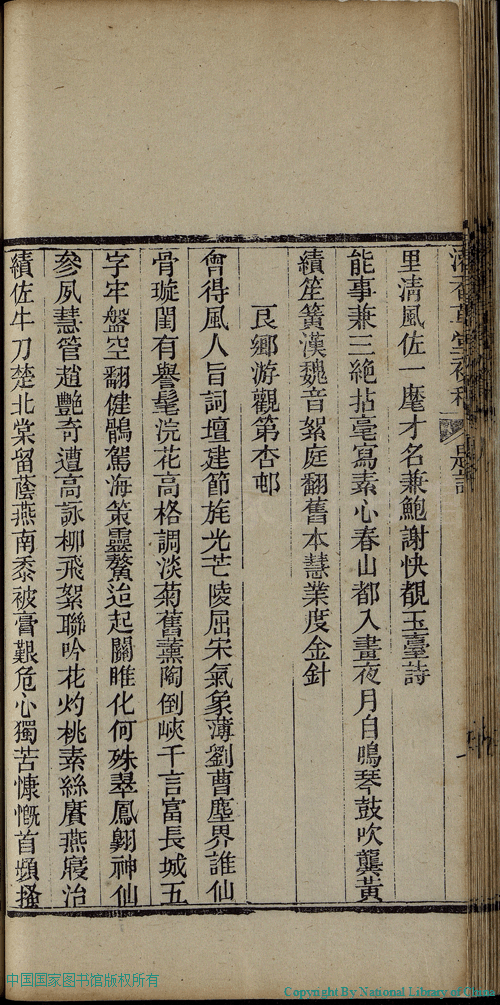 里清風佐一麾才名兼鮑謝快覩玉臺詩
能事兼三絶拈毫寫素心春山都入畫夜月自鳴琴鼓吹龔黃
績笙簧漢魏音絮庭翻舊本慧業度金針
艮鄉游觀第杏邨
曾得風人旨詞壇建節旄光芒陵屈宋氣象薄劉曹塵界誰仙
骨璇閨有譽髦浣花高格調淡菊舊薰陶倒峽千言富長城五
字牢盤空翻健鶻駕海策靈鰲迨起關雎化何殊翠鳳翺神仙
參夙慧管趙艷奇遭高詠柳飛絮聯吟花灼桃素絲賡燕寢治
績佐牛刀楚北棠留蔭燕南黍被膏艱危心獨苦慷慨首頻搔
中国国家图书馆版权所有
Copyright By National Library of China